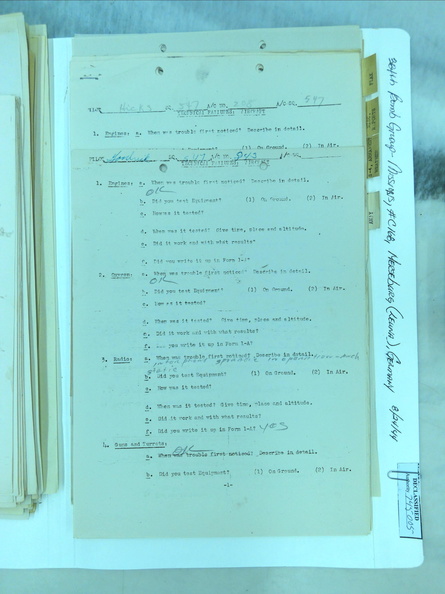 PILOT Hicks A/C NO. A/C NO. 597
TECHNICAL FAILURES, INDIVIDUAL
1. Engines: a. When was trouble first noticed? Describe in detail.
(1) On Ground. (2) In Air.
PILOT
1. Engines: a. When was trouble first noticed? Describe in detail.
OK
b. Did you test Equipment? (1) On Ground. (2) In Air.
c. How was it tested?
d. When was it tested? Give time, place and altitude.
e. Did it work and with what results?
f. Did you write it up in Form 1-A?
2. a. When was trouble first noticed? Describe in detail.
OK
b. Did you test Equipment? (1) On Ground. (2) In Air.
c. How was it tested?
d. When was it tested? Give time, place and altitude.
e. Did it work and with what results?
f. Did you write it up in Form 1-A?
3. Radio: a. When was trouble first noticed? Describe in detail.
b. Did you test Equipment? (1) On Ground. (2) In Air.
c. How was it tested?
d. When was it tested? Give time, place and altitude.
e. Did it work and with what results?
f. Did you write it up in Form 1-A? yes
4. Guns and Turrets:
OK
a. When was trouble first noticed? Describe in detail.
b. Did you test Equipment? (1) On Ground. (2) In Air.
-1-
384th Bomb Group- Missions, #C166, Merseburg (Leuna), Germany 8/24/44
DECLASSIFIED
745005
FLAK